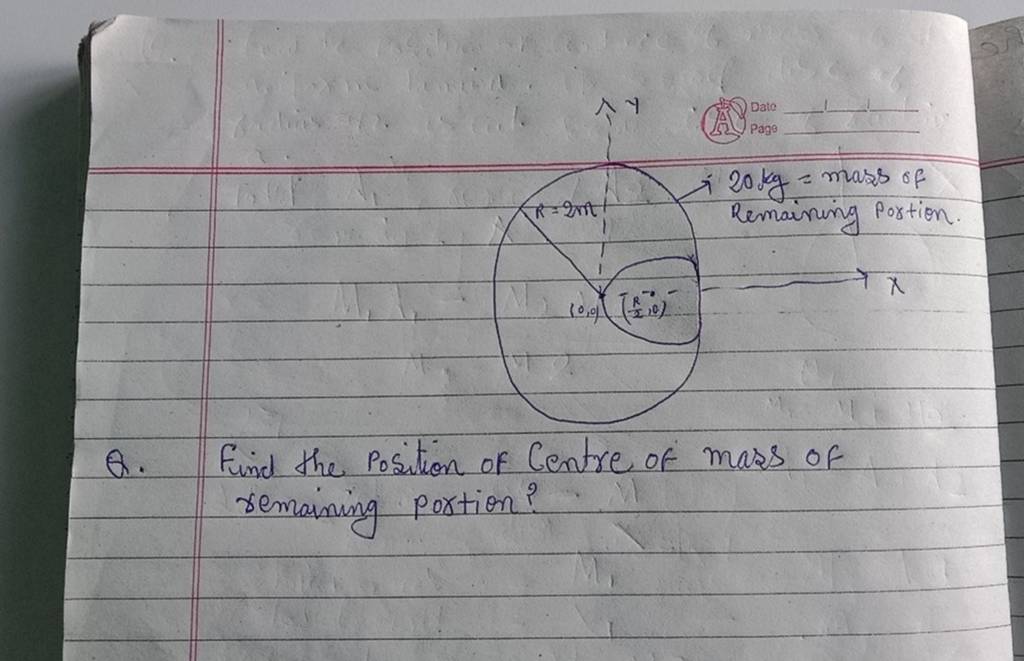 Y
Date
Page
20 kg = mass of
Remaining Portion.
R = 2m
X
(0,0)
(R/2,0)
Q. Find the Position of Centre of mass of
remaining portion?